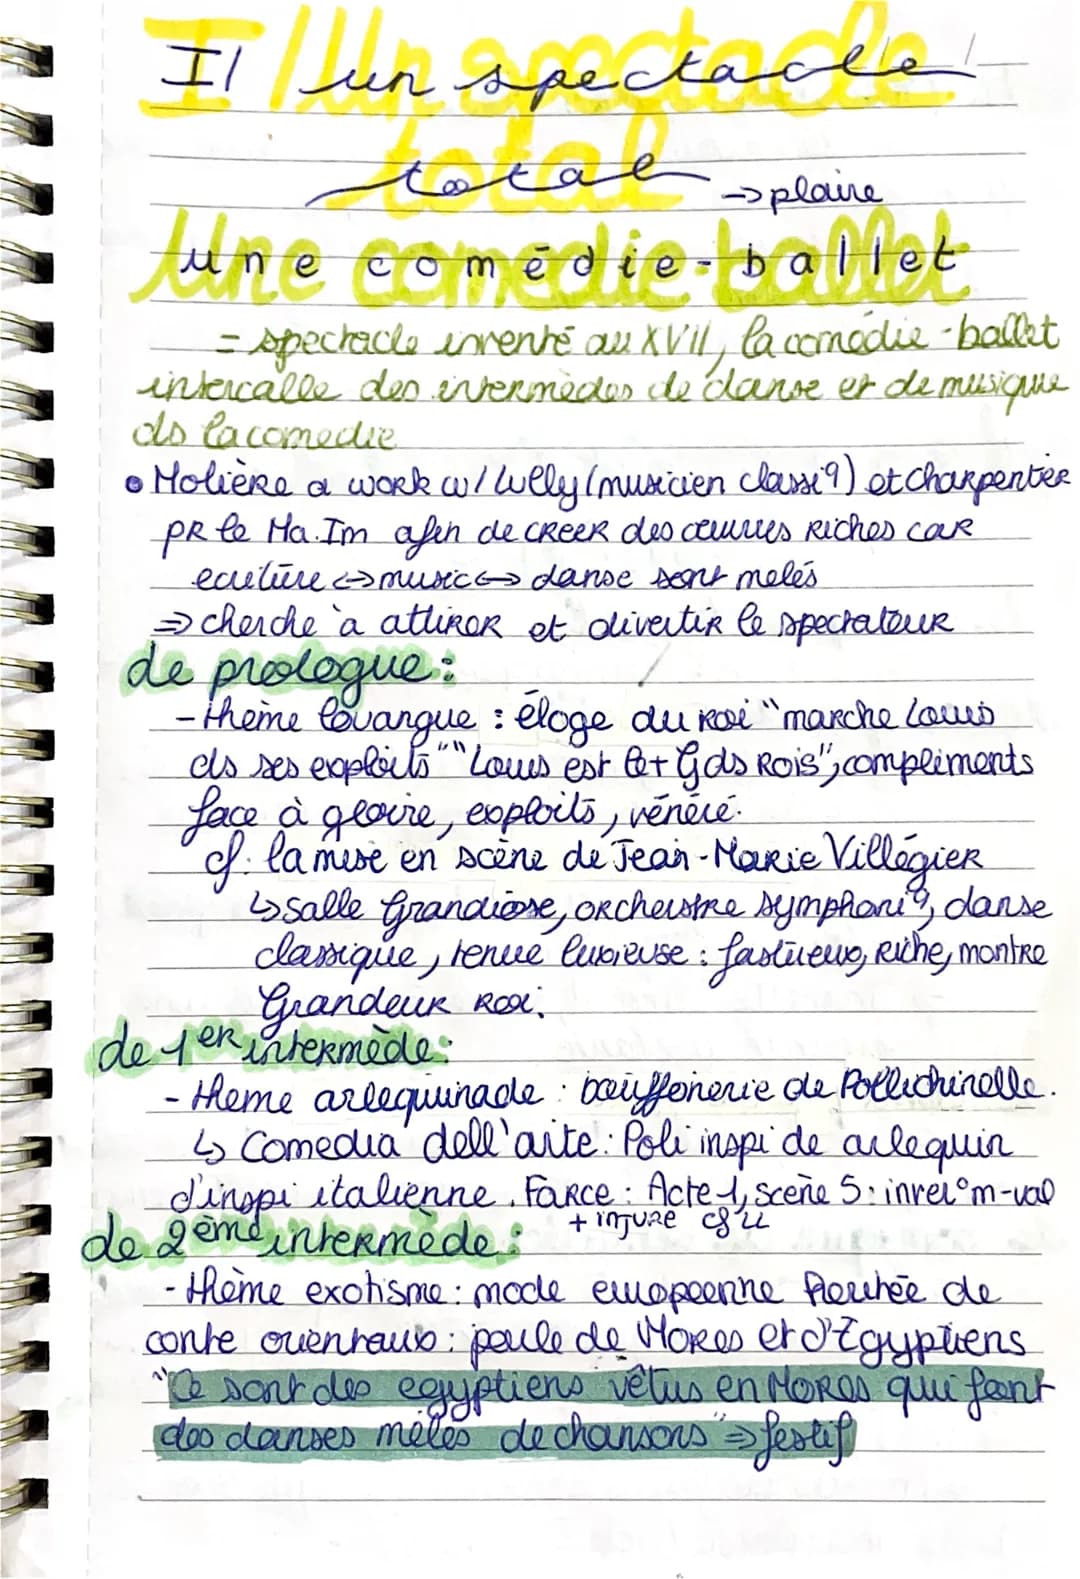 I/ Un spectacle
total → plaire
Une comédie-ballet
= spectacle inventé au XVII, la comédie-ballet
intercalle des intermèdes de danse et de musique
ds la comedie
• Molière a work w/ Lully (musicien classiq) et Charpentier
PR le Ma.Im afin de CREER des œuvres Riches car
ecriture ↔ music ↔ danse sont melés
⇒ cherche à attirer et divertir le spectateur
de prologue :
- thème louangue : éloge du Roi "marche Louis
ds ses exploits" "Louis est le + Gds Rois", compliments
face à gloire, exploits, vénéré.
cf. la mise en scène de Jean-Marie Villégier
↳ salle Grandiose, orcherstre symphoniq, danse
classique, tenue luxieuse : fastueux, Riche, montre
Grandeur Roi.
de 1er intermède :
- theme arlequinade : bouffonerie de Pollichinelle.
↳ Comedia dell'arte : Poli inspi de arlequin
d'inspi italienne. Farce : Acte 1, scène 5 : inver° m-val
+ injure cf
de 2ème intermède :
- thème exotisme : mode europeenne de
conte orientaux : peule de Mores et d'Egyptiens
"Ce sont des egyptiens vêtus en Mores qui font
des danses mélés de chansons" ⇒ festif